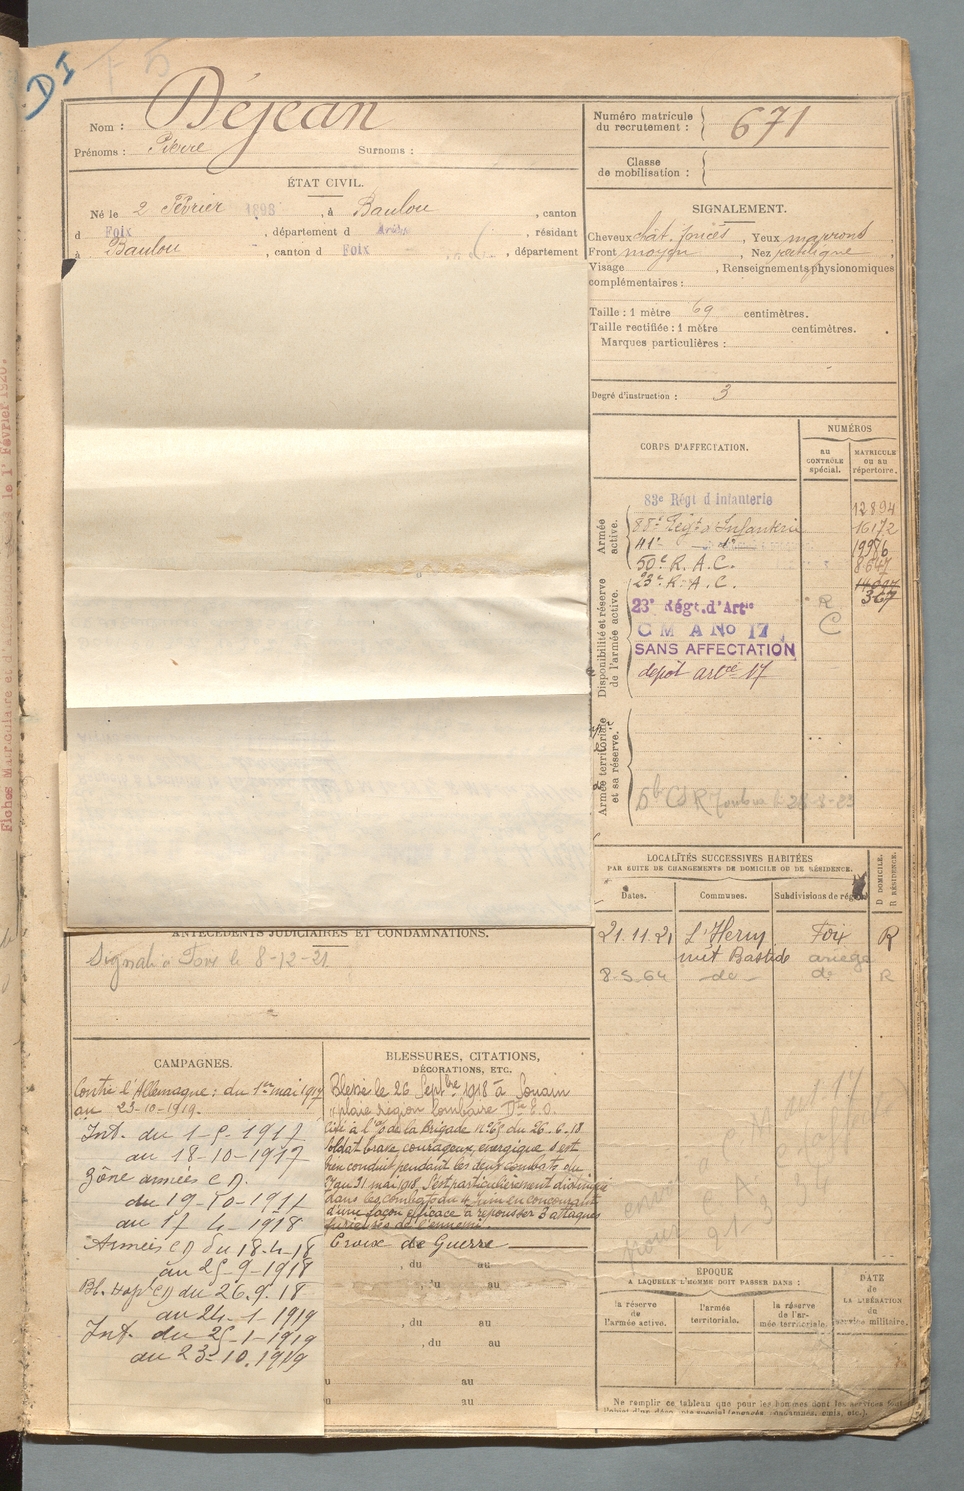 DI
75
Nom : Déjean
Prénoms : Pierre Surnoms :
ÉTAT CIVIL.
Né le 2 Février 1898, à Baulou, canton
d Foix, département d Ariège, résidant
à Baulou, canton d Foix, département
ANTÉCÉDENTS JUDICIAIRES ET CONDAMNATIONS.
Signalé à Foix le 8-12-21
CAMPAGNES.
Contre l'Allemagne : du 1er mai 1917
au 23-10-1919.
Int. du 1-5-1917
au 18-10-1917
Zône armées CD.
du 19-10-1917
au 17-4-1918
Armées CD du 18-4-18
au 25-9-1918
Bl. Hopl CD du 26.9.18
au 24-1-1919
Int. du 25-1-1919
au 23-10.1919
BLESSURES, CITATIONS,
DÉCORATIONS, ETC.
Blessé le 26 Septbre 1918 à Souain
plaie région lombaire Dte E.O.
Cité à l'O/ de la Brigade N° 65 du 26-6-18
Soldat brave, courageux, énergique s'est
bien conduit pendant les deux combats du
au 31 mai 1918. S'est particulièrement distingué
dans les combats du 4 Juin en concourant
d'une façon efficace à repousser 3 attaques
furieuses de l'ennemi.
Croix de Guerre
, du au
au
, du au
, du au
au
au
Numéro matricule
du recrutement : 671
Classe
de mobilisation :
SIGNALEMENT.
Cheveux chât. foncés, Yeux marrons,
Front moyen, Nez rectiligne,
Visage , Renseignements physionomiques
complémentaires :
Taille : 1 mètre 69 centimètres.
Taille rectifiée : 1 mètre centimètres.
Marques particulières :
Degré d'instruction : 3
CORPS D'AFFECTATION.
NUMÉROS
AU CONTRÔLE spécial.
MATRICULE OU AU répertoire.
Armée active.
83e Régt d'infanterie 12894
88e Régt d'Infanterie 16172
41e - do 19986
50e R.A.C. 8647
23e R.A.C. 14097
367
Disponibilité et réserve de l'armée active.
23e Régt. d'Artie R
C M A No 17 C
SANS AFFECTATION
dépôt artie 17
Armée territoriale et sa réserve.
28-8-23
LOCALITÉS SUCCESSIVES HABITÉES
PAR SUITE DE CHANGEMENTS DE DOMICILE OU DE RÉSIDENCE.
D DOMICILE.
R RÉSIDENCE.
Dates. Communes. Subdivisions de région
21.11.21 L'Herm Foix R
Bastide ariège
8-5-64 -do- do R
ÉPOQUE
A LAQUELLE L'HOMME DOIT PASSER DANS :
DATE
de
LA LIBÉRATION
du
service militaire.
la réserve de l'armée active.
l'armée territoriale.
la réserve de l'armée territoriale.
Ne remplir ce tableau que pour les hommes dont les services font